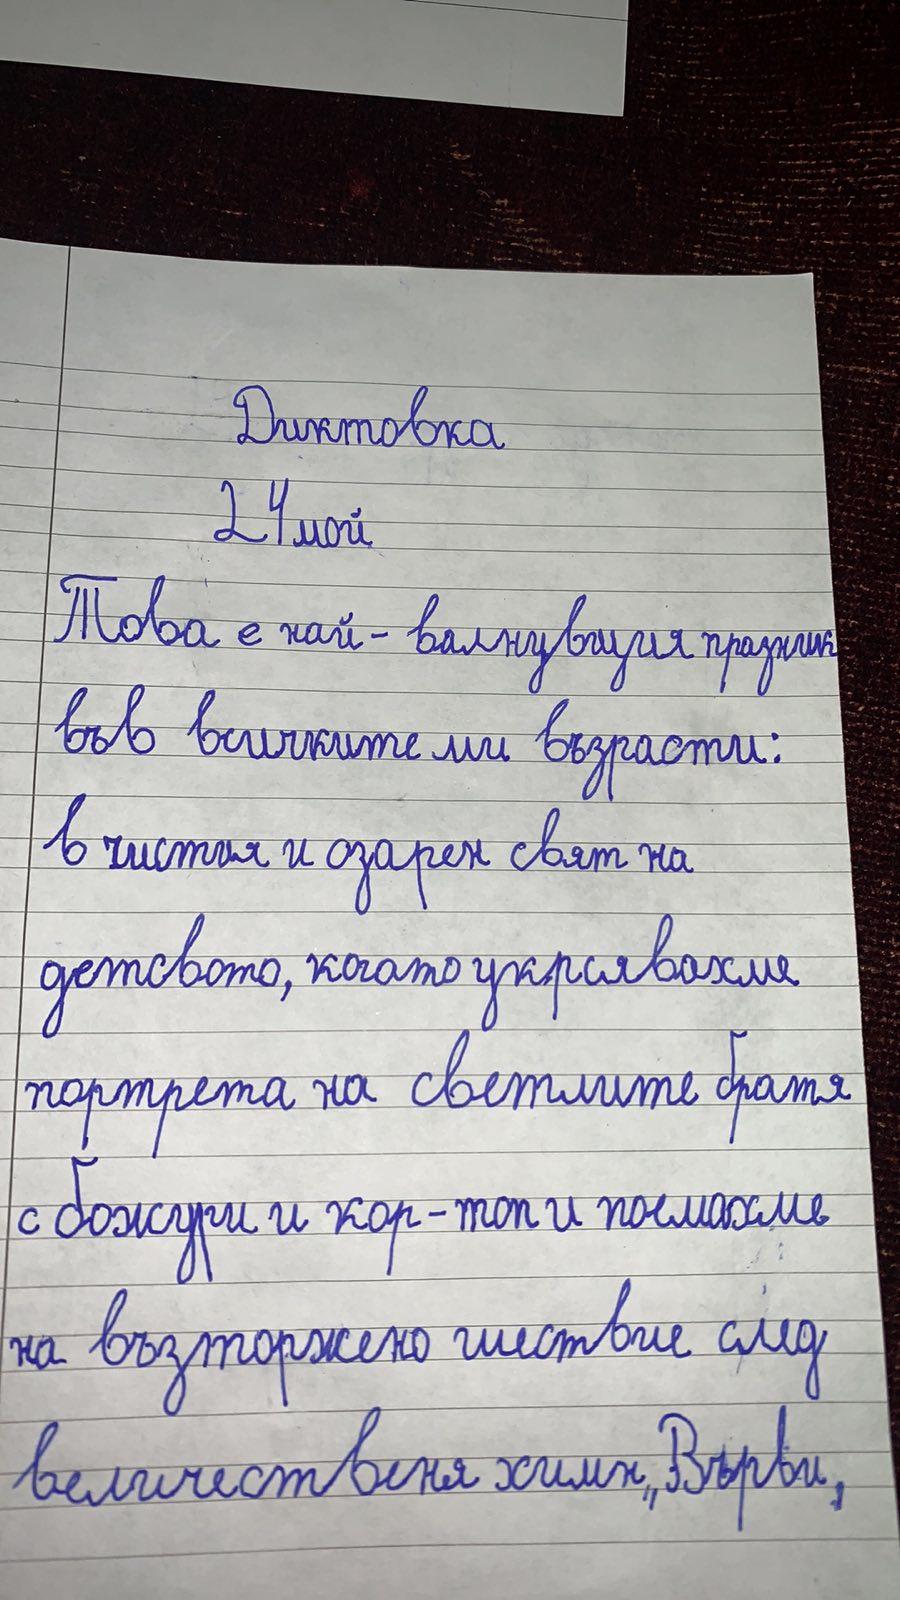 Диктовка
24 май
Това е най-валнуващия празник
във всичките ми възрасти:
в чистия и озарен свят на
детсвото, когато укрсявахме
портрета на светлите братя
с божури и кар-топи и поемахме
на възторжено шествие след
величествения химн „Върви,